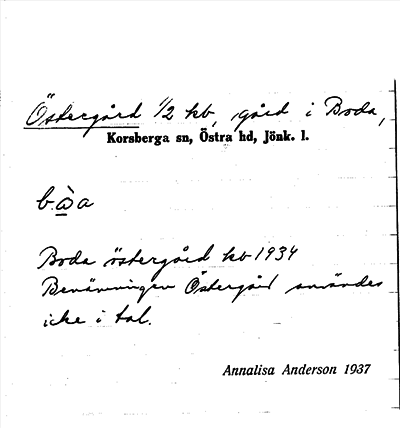 Östergård 1/2 kb, gård i Boda,
Korsberga sn, Östra hd, Jönk. l.
bàa
Boda östergård kb 1934
Benämningen Östergård användes
icke i tal.
Annalisa Anderson 1937